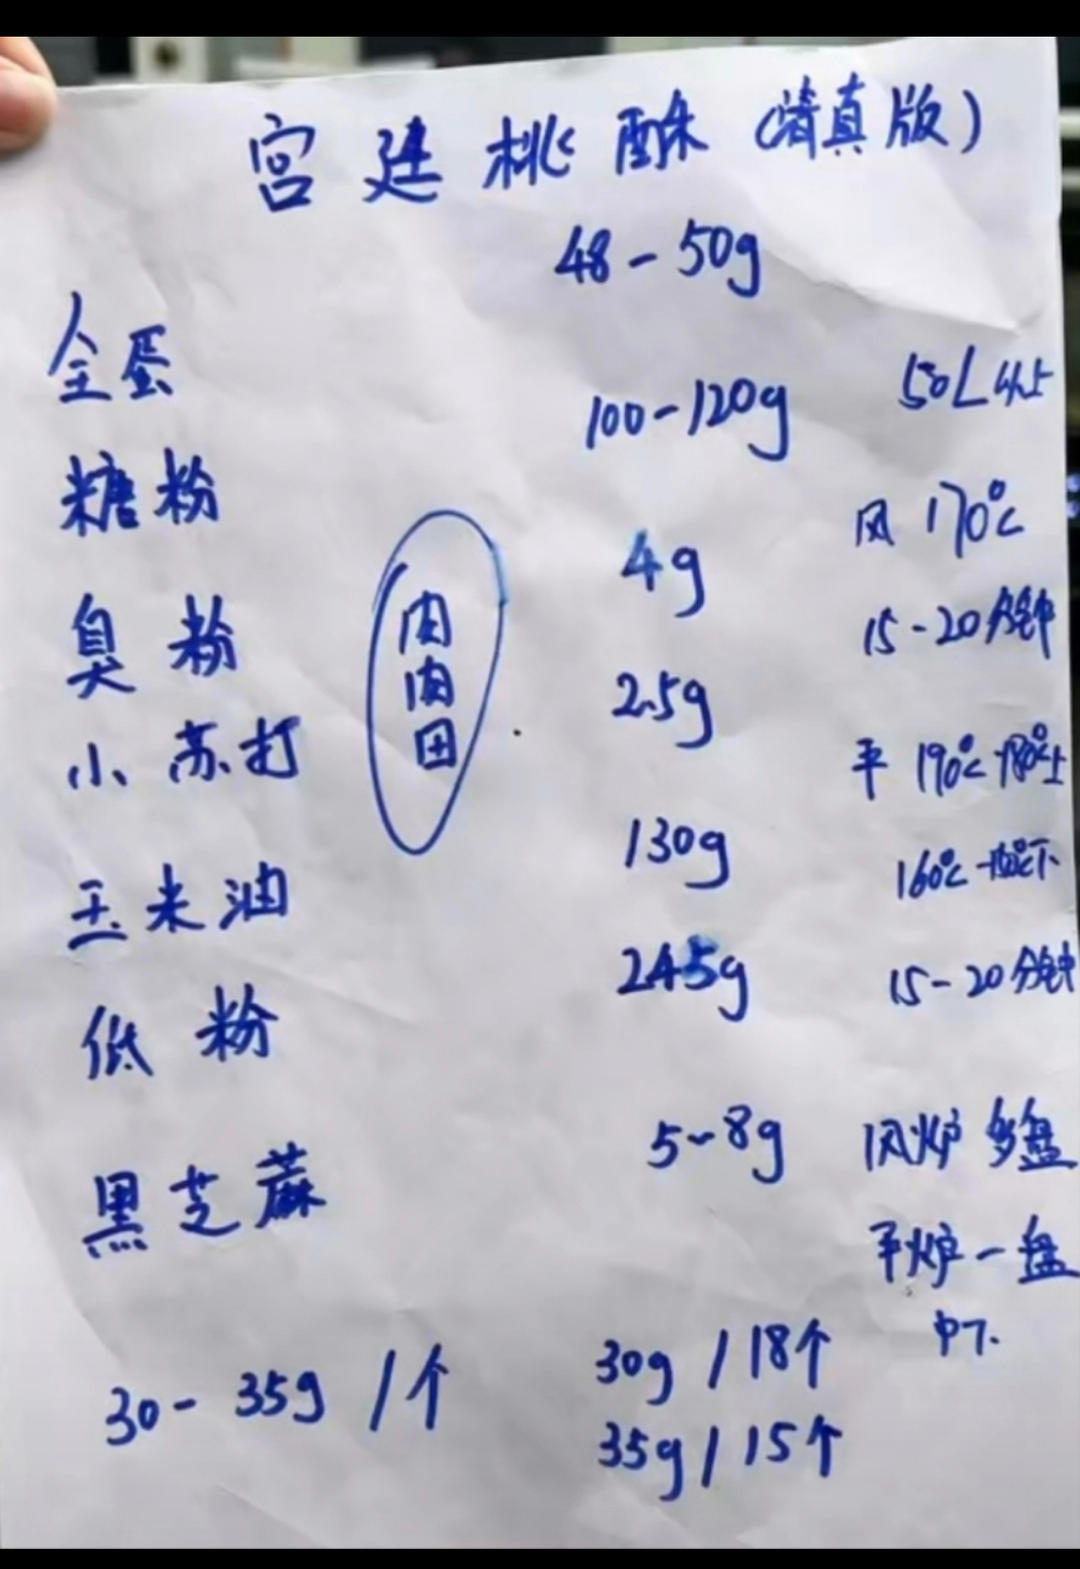 宫廷桃酥（清真版）
全蛋 48-50g
糖粉 100-120g
臭粉 4g
小苏打 2.5g
玉米油 130g
低粉 245g
黑芝蔴 5-8g
30-35g/个
30g/18个
35g/15个
肉肉田
50L以上
风 170℃
15-20分钟
平 190℃-180℃上
160℃-150℃下
15-20分钟
风炉多盘
平炉一盘
中下